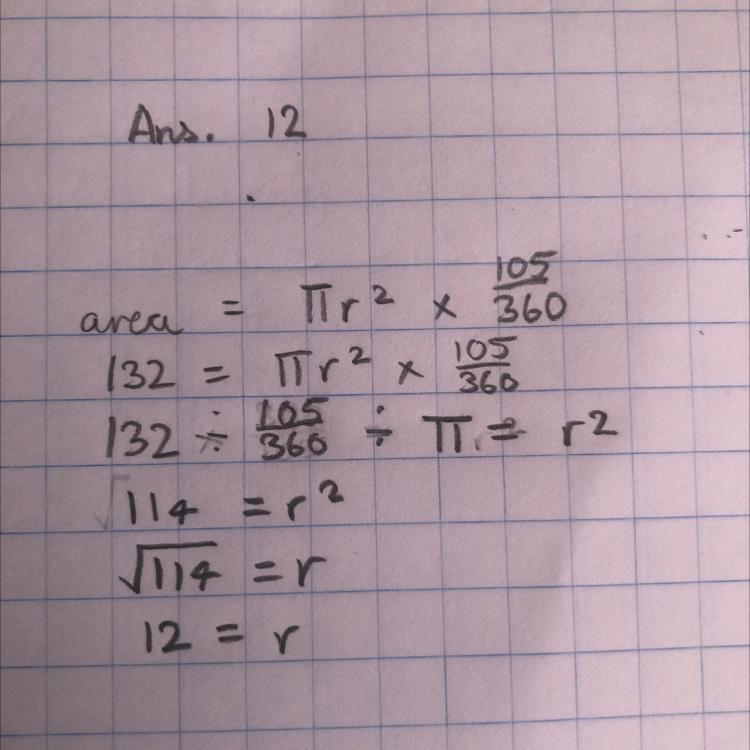 Ans. 12
area = πr² × 105/360
132 = πr² × 105/360
132 ÷ 105/360 ÷ π = r²
114 = r²
√114 = r
12 = r